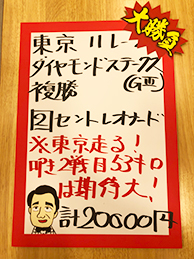 大勝負
東京11レース
ダイヤモンドステークス
(GⅢ)
複勝
2 セントレオナード
※東京走る!
叩き2戦目53キロ
は期待大!
計20000円